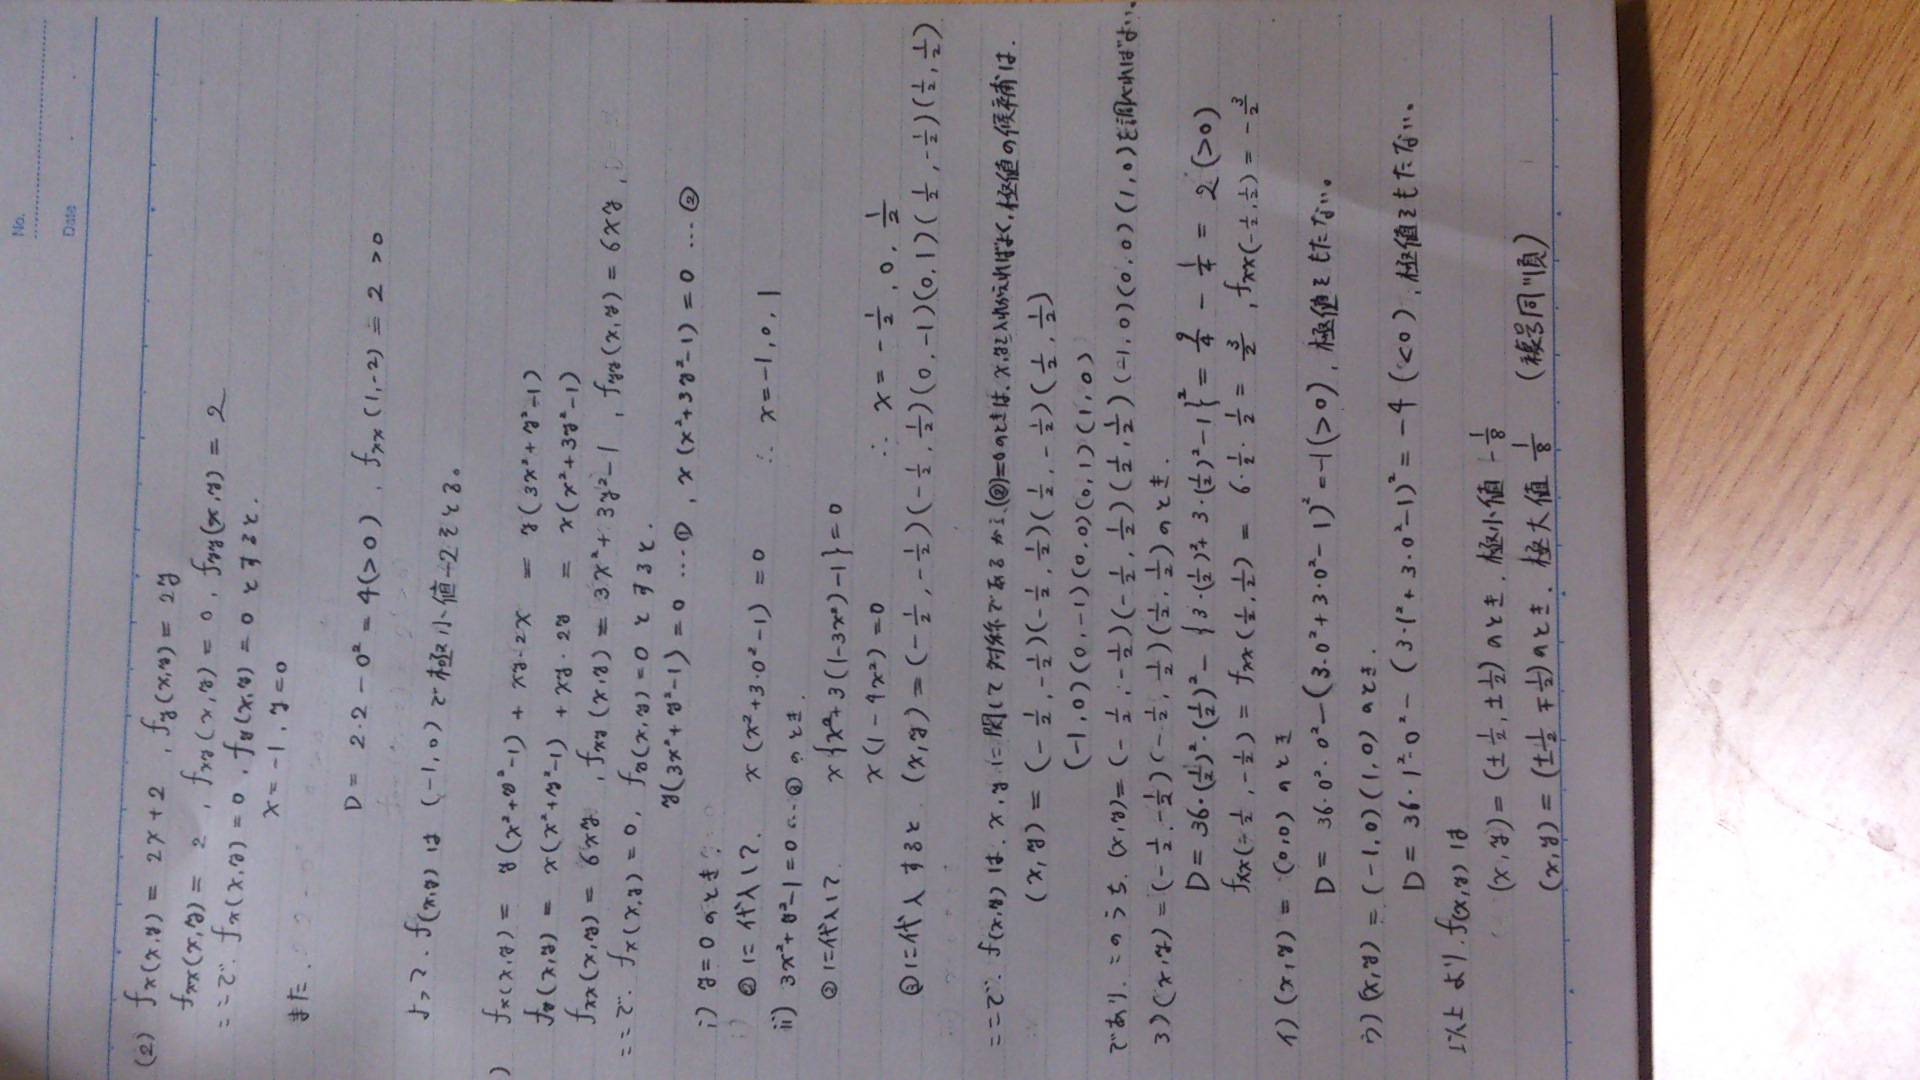 No.
Date
(2) fx(x,y) = 2x+2 , fy(x,y) = 2y
fxx(x,y) = 2 , fxy(x,y) = 0 , fyy(x,y) = 2
ここで. fx(x,y) = 0 , fy(x,y) = 0 とすると.
x = -1 , y = 0
また.
D = 2・2 - 0² = 4(>0) , fxx(1,-2) = 2 > 0
よって. f(x,y) は (-1,0) で極小値-2をとる。
) fx(x,y) = y(x²+y²-1) + xy・2x = y(3x²+y²-1)
fy(x,y) = x(x²+y²-1) + xy・2y = x(x²+3y²-1)
fxx(x,y) = 6xy , fxy(x,y) = 3x²+3y²-1 , fyy(x,y) = 6xy ,
ここで. fx(x,y) = 0, fy(x,y) = 0 とすると.
y(3x²+y²-1) = 0 …① , x(x²+3y²-1) = 0 …②
i) y=0 のとき.
②に代入して. x(x²+3・0²-1) = 0 ∴ x=-1, 0, 1
ii) 3x²+y²-1=0…③ のとき.
②に代入して. x{x²+3(1-3x²)-1}=0
x(1-4x²)=0 ∴ x = -1/2 , 0 , 1/2
③に代入すると (x,y) = (-1/2,-1/2)(-1/2,1/2)(0,-1)(0,1)(1/2,-1/2)(1/2,1/2)
ここで. f(x,y) は. x,y に関して対称であるから.(②)=0のときは. x,yを入れかえればよく, 極値の候補は.
(x,y) = (-1/2,-1/2)(-1/2,1/2)(1/2,-1/2)(1/2,1/2)
(-1,0)(0,-1)(0,0)(0,1)(1,0)
であり. このうち. (x,y)=(-1/2,-1/2)(-1/2,1/2)(1/2,1/2)(-1,0)(0,0)(1,0)を調べればよい.
(x,y) = (-1/2,-1/2)(-1/2,1/2)(1/2,1/2)のとき.
D = 36・(1/2)²・(1/2)² - {3・(1/2)²+3・(1/2)²-1}² = 9/4 - 1/4 = 2 (>0)
fxx(-1/2,-1/2) = fxx(1/2,1/2) = 6・1/2・1/2 = 3/2 , fxx(-1/2,1/2) = -3/2
イ) (x,y) = (0,0) のとき
D = 36・0²・0² - (3・0²+3・0²-1)² = -1(>0) , 極値をもたない。
ウ) (x,y) = (-1,0)(1,0) のとき.
D = 36・1²・0² - (3・1²+3・0²-1)² = -4 (<0) , 極値をもたない。
以上より. f(x,y) は
(x,y) = (±1/2,±1/2) のとき. 極小値 -1/8
(x,y) = (±1/2,∓1/2) のとき. 極大値 1/8 (複号同順)